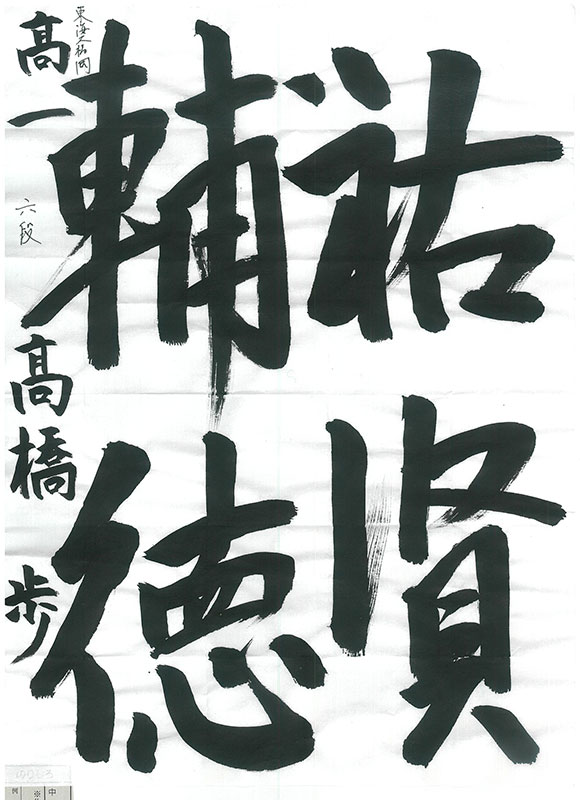 祐賢
輔徳
東海大福岡
高一 六段 高橋 歩